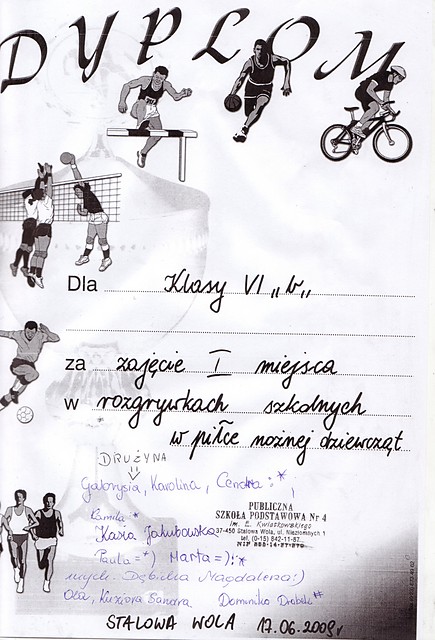 DYPLOM
Dla Klasy VI „b„
za zajęcie I miejsca
w rozgrywkach szkolnych
w piłce nożnej dziewcząt
DRUŻYNA
Gabrysia, Karolina,
Kamila :*
Kasia Jakubowska
Paula =*) Marta =):*
Dębicka Magdalena:)
Ola, Sandra Dominika
PUBLICZNA
SZKOŁA PODSTAWOWA Nr 4
im. E. Kwiatkowskiego
37-450 Stalowa Wola, ul. Niezłomnych 1
tel. (0-15) 842-11-87
STALOWA WOLA 17.06.2009r